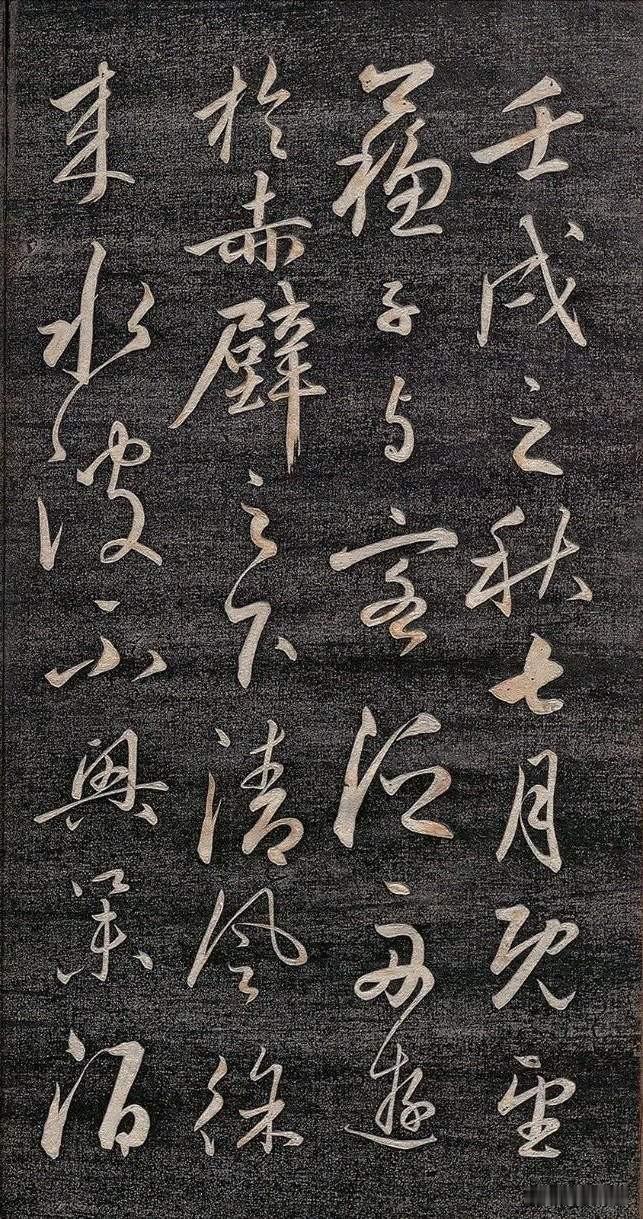 壬戌之秋七月既望
蘇子与客泛舟遊
於赤壁之下清風徐
来水波不興舉酒